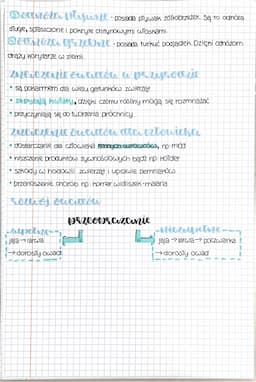 Odnóża pływne - posiada pływak żółtobrzeżek. Są to odnóża
długie, spłaszczone i pokryte dwurowymi włoskami.
Odnóża grzebne - posiada turkuć podjadek. Dzięki odnóżom
drąży korytarze w ziemi.
Znaczenie owadów w przyrodzie
• są pokarmem dla wielu gatunków zwierząt
• zapylają kwiaty, dzięki czemu rośliny mogą się rozmnażać
• przyczyniają się do tworzenia próchnicy
Znaczenie owadów dla człowieka
• dostarczanie dla człowieka np. miód
• niszczenie produktów żywnościowych bądź np.
• szkody w hodowli zwierząt i uprawie ziemniaków
• przenoszenie chorób np. komar widliszek-malaria
rozwój owadów
przeobrażenie
zupełne
niezupełne
jaja → larwa
→ dorosły owad
jaja → larwa → poczwarka
→ dorosły owad